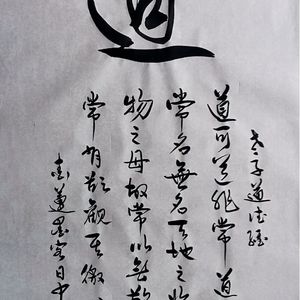 道
老子道德經
道可道非常道
常名無名天地之始
物之母故常以無欲
常有欲觀其徼
蓮墨客日中